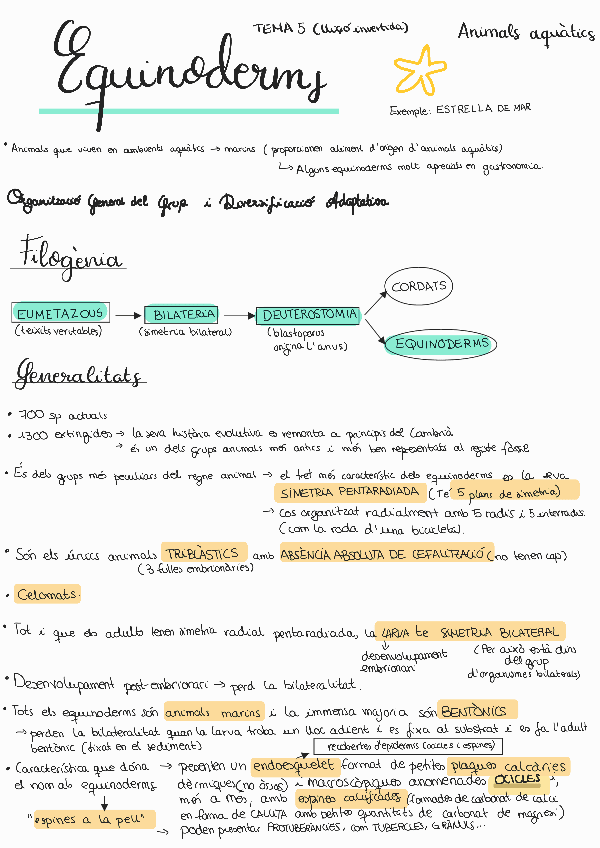 TEMA 5 (lliçó invertida)
Animals aquàtics
Equinoderms
Exemple: ESTRELLA DE MAR
• Animals que viven en ambients aquàtics → marins ( proporcionen aliment d'origen d'animals aquàtics)
↳ Alguns equinoderms molt apreciats en gastronomia.
Organització General del Grup i Diversificació Adaptativa
Filogènia
EUMETAZOUS → BILATERIA → DEUTEROSTOMIA
(teixits veritables) (simetria bilateral) (blastoporus origina l'anus)
CORDATS
EQUINODERMS
Generalitats
• 700 sp actuals
• 1300 extingides → la seva història evolutiva es remonta a principis del Cambrià
→ és un dels grups animals més antics i més ben representats al registre fòssil
• És dels grups més peculiars del regne animal → el tret més característic dels equinoderms es la seva
SIMETRIA PENTARADIADA (Té 5 plans de simetria)
→ cos organitzat radialment amb 5 radis i 5 interradis.
(com la roda d'una bicicleta).
• Són els únics animals TRIBLÀSTICS amb ABSÈNCIA ABSOLUTA DE CEFALITZACIÓ (no tenen cap)
(3 fulles embrionàries)
• Celomats.
• Tot i que els adults tenen simetria radial pentaradiada, la LARVA té SIMETRIA BILATERAL
↓ desenvolupament embrionari
(Per això està dins del grup d'organismes bilaterals)
• Desenvolupament post-embrionari → perd la bilateralitat.
• Tots els equinoderms són animals marins i la immensa majoria són BENTÒNICS
→ perden la bilateralitat quan la larva troba un lloc adient i es fixa al substrat i es fa l'adult
bentònic (fixat en el sediment)
recobertes d'epidermis (ocicles i espines)
• Característica que dóna el nom als equinoderms
↓
"espines a la pell"
→ presenten un endoesquelet format de petites plaques calcàries
dèrmiques (no òssies) i macroscòpiques anomenades OCICLES i,
més a més, amb espines calcificades (formades de carbonat de calci
en forma de CALCITA amb petites quantitats de carbonat de magnesi)
→ poden presentar PROTUBERÀNCIES, com TUBERCLES, GRÀNULS...